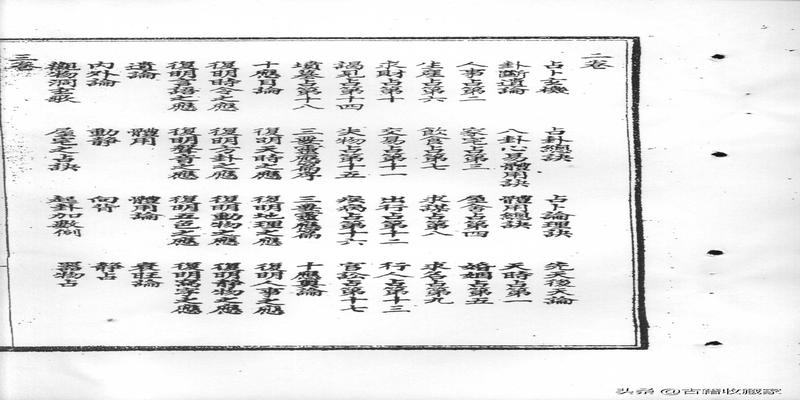 二卷
占卜玄機 占卦總訣 占卜論理訣 先天後天論
卦斷遺論 八卦心易體用訣 體用總訣 天時占第一
人事占第二 家宅占第三 屋舍占第四 婚姻占第五
生產占第六 飲食占第七 求謀占第八 求名占第九
求財占第十 交易占第十一 出行占第十二 行人占第十三
謁見占第十四 失物占第十五 疾病占第十六 官訟占第十七
墳墓占第十八 三要靈應篇序 三要靈應篇 十應奧論
十應目論 復明天時之應 復明地理之應 復明人事之應
復明時令之應 復明方卦之應 復明動物之應 復明靜物之應
復明言語之應 復明聲音之應 復明五色之應 復明寫字之應
遺論 體用 體用論 衰旺論
內外論 動靜 向背 靜占
觀物洞玄歌 屋宅之占訣 起卦加數例 器物占
三卷
头条 @古籍收藏家